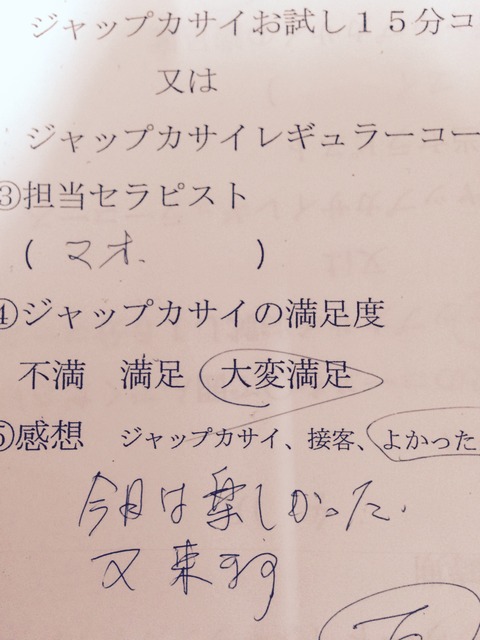 ジャップカサイお試し15分コ
又は
ジャップカサイレギュラーコー
③担当セラピスト
( マオ. )
④ジャップカサイの満足度
不満 満足 大変満足
⑤感想 ジャップカサイ、接客、よかった
今日は楽しかった.
又来ます